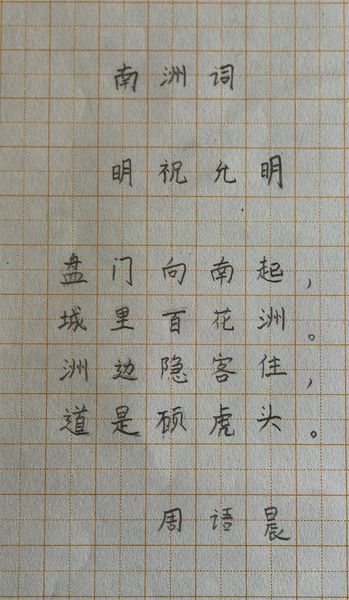 南洲词
明祝允明
盘门向南起，
城里百花洲。
洲边隐客住，
道是顾虎头。
周语晨